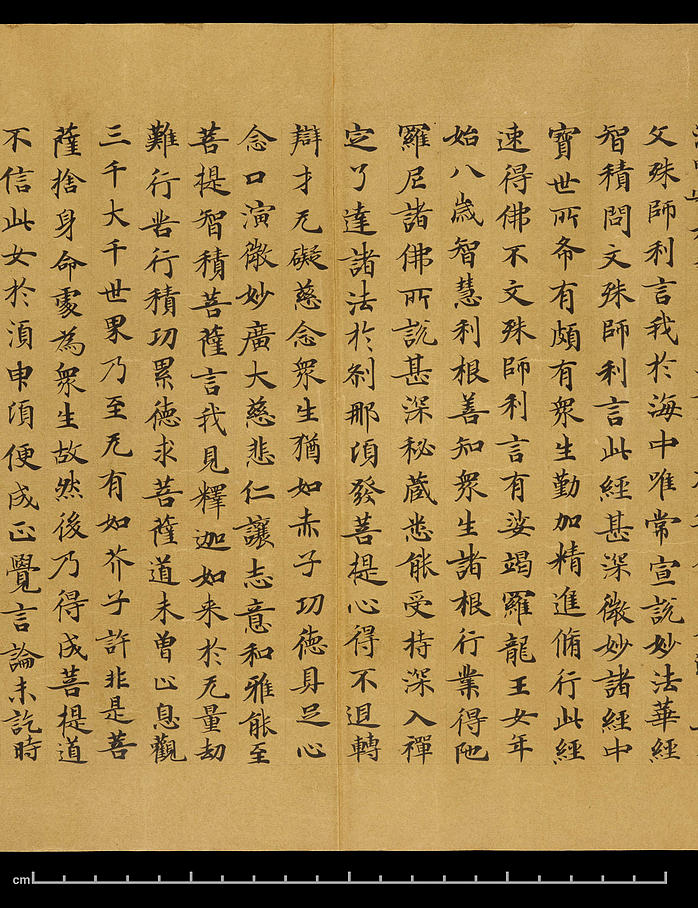 文殊師利言我於海中唯常宣說妙法華經
智積問文殊師利言此經甚深微妙諸經中
寶世所希有頗有衆生勤加精進脩行此經
速得佛不文殊師利言有娑竭羅龍王女年
始八歲智慧利根善知衆生諸根行業得陁
羅尼諸佛所說甚深秘蔵悉能受持深入禪
定了達諸法於剎那頃發菩提心得不退轉
辯才无礙慈念衆生猶如赤子功德具足心
念口演微妙廣大慈悲仁讓志意和雅能至
菩提智積菩薩言我見釋迦如来於无量劫
難行苦行積功累德求菩薩道未曾止息觀
三千大千世界乃至无有如芥子許非是菩
薩捨身命處為衆生故然後乃得成菩提道
不信此女於須申頃便成正覺言論未訖時
cm